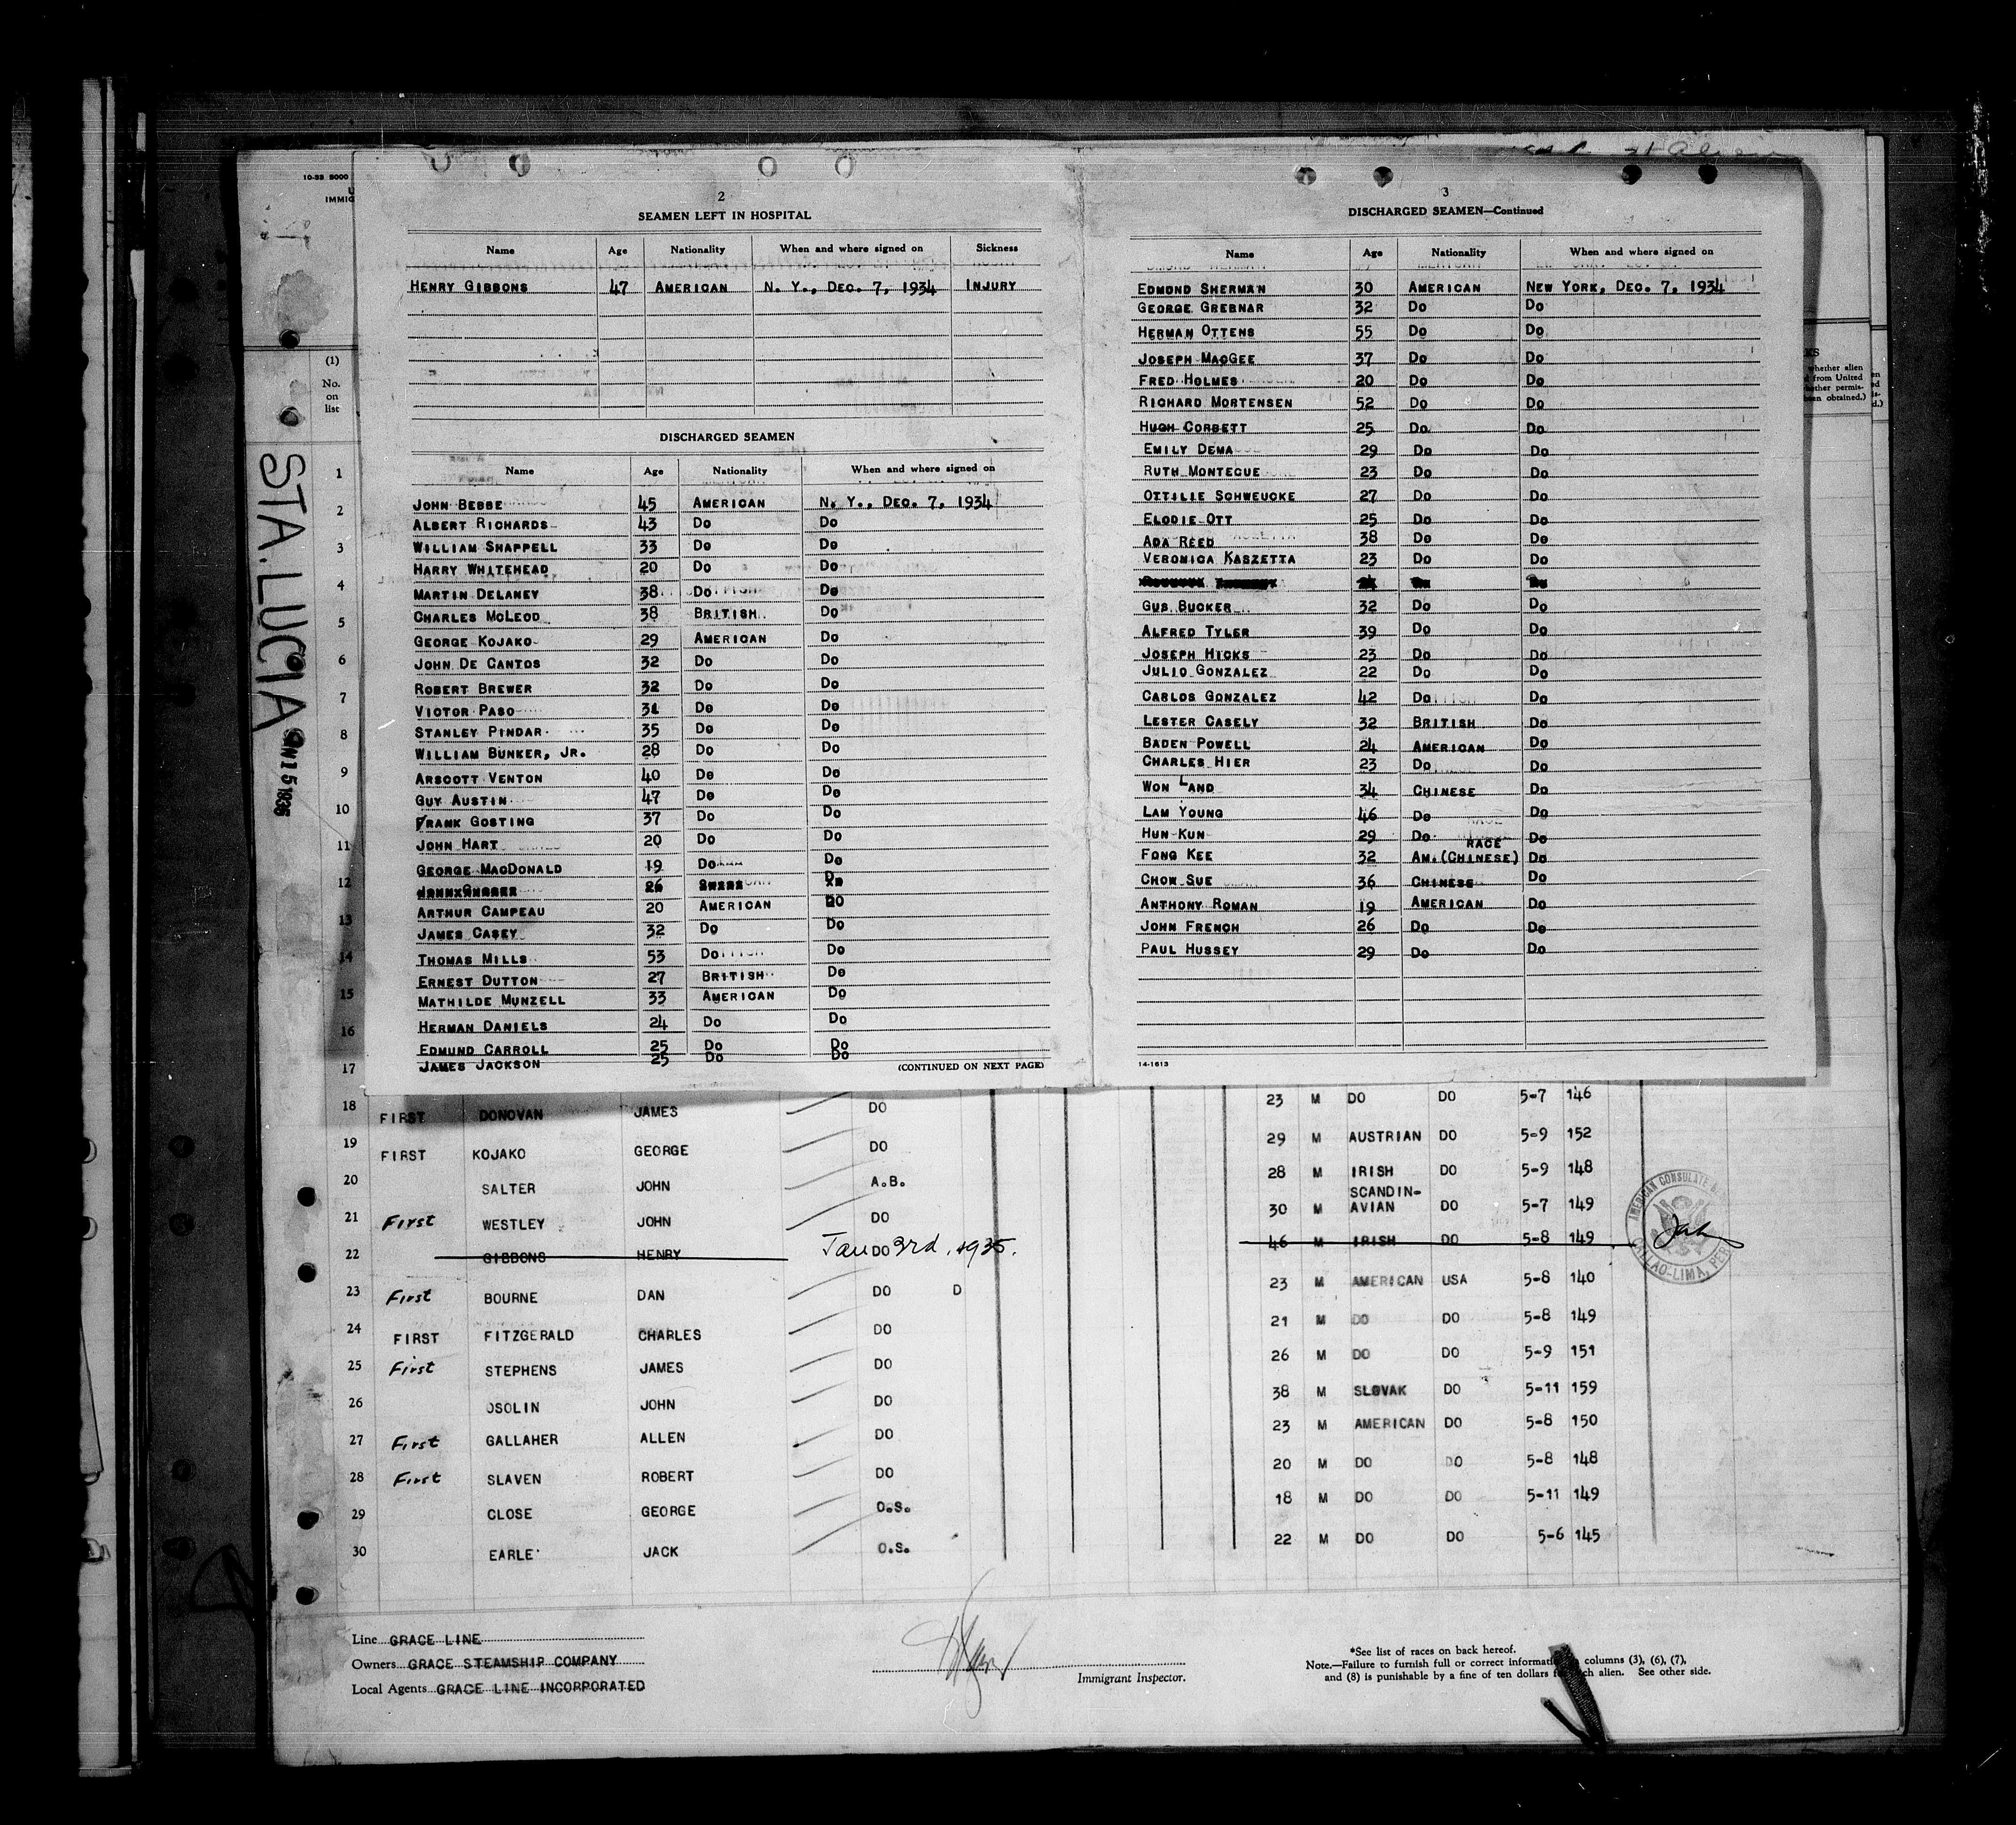 10-33 5000
IMMIG
(1)
No.
on
list
STA. LUCIA
2
SEAMEN LEFT IN HOSPITAL
Name Age Nationality When and where signed on Sickness
HENRY GIBBONS 47 AMERICAN N. Y., DEC. 7, 1934 INJURY
DISCHARGED SEAMEN
Name Age Nationality When and where signed on
JOHN BEBBE 45 AMERICAN N. Y., DEC. 7, 1934
ALBERT RICHARDS 43 DO DO
WILLIAM SHAPPELL 33 DO DO
HARRY WHITEHEAD 20 DO DO
MARTIN DELANEY 38 DO DO
CHARLES MCLEOD 38 BRITISH DO
GEORGE KOJAKO 29 AMERICAN DO
JOHN DE CANTOS 32 DO DO
ROBERT BREWER 32 DO DO
VICTOR PASO 31 DO DO
STANLEY PINDAR 35 DO DO
WILLIAM BUNKER, JR. 28 DO DO
ARSCOTT VENTON 40 DO DO
GUY AUSTIN 47 DO DO
FRANK GOSTING 37 DO DO
JOHN HART 20 DO DO
GEORGE MACDONALD 19 DO DO
26
ARTHUR CAMPEAU 20 AMERICAN DO
JAMES CASEY 32 DO DO
THOMAS MILLS 53 DO DO
ERNEST DUTTON 27 BRITISH DO
MATHILDE MUNZELL 33 AMERICAN DO
HERMAN DANIELS 24 DO DO
EDMUND CARROLL 25 DO DO
JAMES JACKSON 25 DO DO
(CONTINUED ON NEXT PAGE)
3
DISCHARGED SEAMEN—Continued
Name Age Nationality When and where signed on
EDMOND SHERMAN 30 AMERICAN NEW YORK, DEC. 7, 1934
GEORGE GREBNAR 32 DO DO
HERMAN OTTENS 55 DO DO
JOSEPH MACGEE 37 DO DO
FRED HOLMES 20 DO DO
RICHARD MORTENSEN 52 DO DO
HUGH CORBETT 25 DO DO
EMILY DEMA 29 DO DO
RUTH MONTEGUE 23 DO DO
OTTILIE SCHWEUCKE 27 DO DO
ELODIE OTT 25 DO DO
ADA REED 38 DO DO
VERONICA KASZETTA 23 DO DO
GUS BUCKER 32 DO DO
ALFRED TYLER 39 DO DO
JOSEPH HICKS 23 DO DO
JULIO GONZALEZ 22 DO DO
CARLOS GONZALEZ 42 DO DO
LESTER CASELY 32 BRITISH DO
BADEN POWELL 24 AMERICAN DO
CHARLES HIER 23 DO DO
WON LAND 34 CHINESE DO
LAM YOUNG 46 DO DO
HUN KUN 29 DO DO
RACE
FONG KEE 32 AM. (CHINESE) DO
CHOW SUE 36 CHINESE DO
ANTHONY ROMAN 19 AMERICAN DO
JOHN FRENCH 26 DO DO
PAUL HUSSEY 29 DO DO
14-1613
whether alien
from United
whether permis-
been obtained.)
1
2
3
4
5
6
7
8
9
10
11
12
13
14
15
16
17
18 FIRST DONOVAN JAMES DO 23 M DO DO 5-7 146
19 FIRST KOJAKO GEORGE DO 29 M AUSTRIAN DO 5-9 152
20 SALTER JOHN A.B. 28 M IRISH DO 5-9 148
21 First WESTLEY JOHN DO 30 M SCANDIN-AVIAN DO 5-7 149
22 GIBBONS HENRY DO Jan 3rd, 1935. 46 M IRISH DO 5-8 149
23 First BOURNE DAN DO D 23 M AMERICAN USA 5-8 140
24 FIRST FITZGERALD CHARLES DO 21 M DO DO 5-8 149
25 First STEPHENS JAMES DO 26 M DO DO 5-9 151
26 OSOLIN JOHN DO 38 M SLOVAK DO 5-11 159
27 First GALLAHER ALLEN DO 23 M AMERICAN DO 5-8 150
28 First SLAVEN ROBERT DO 20 M DO DO 5-8 148
29 CLOSE GEORGE O.S. 18 M DO DO 5-11 149
30 EARLE JACK O.S. 22 M DO DO 5-6 145
AMERICAN CONSULATE
CALLAO-LIMA, PER
Line GRACE LINE
Owners GRACE STEAMSHIP COMPANY
Local Agents GRACE LINE INCORPORATED
Immigrant Inspector.
*See list of races on back hereof.
Note.—Failure to furnish full or correct information columns (3), (6), (7),
and (8) is punishable by a fine of ten dollars for each alien. See other side.